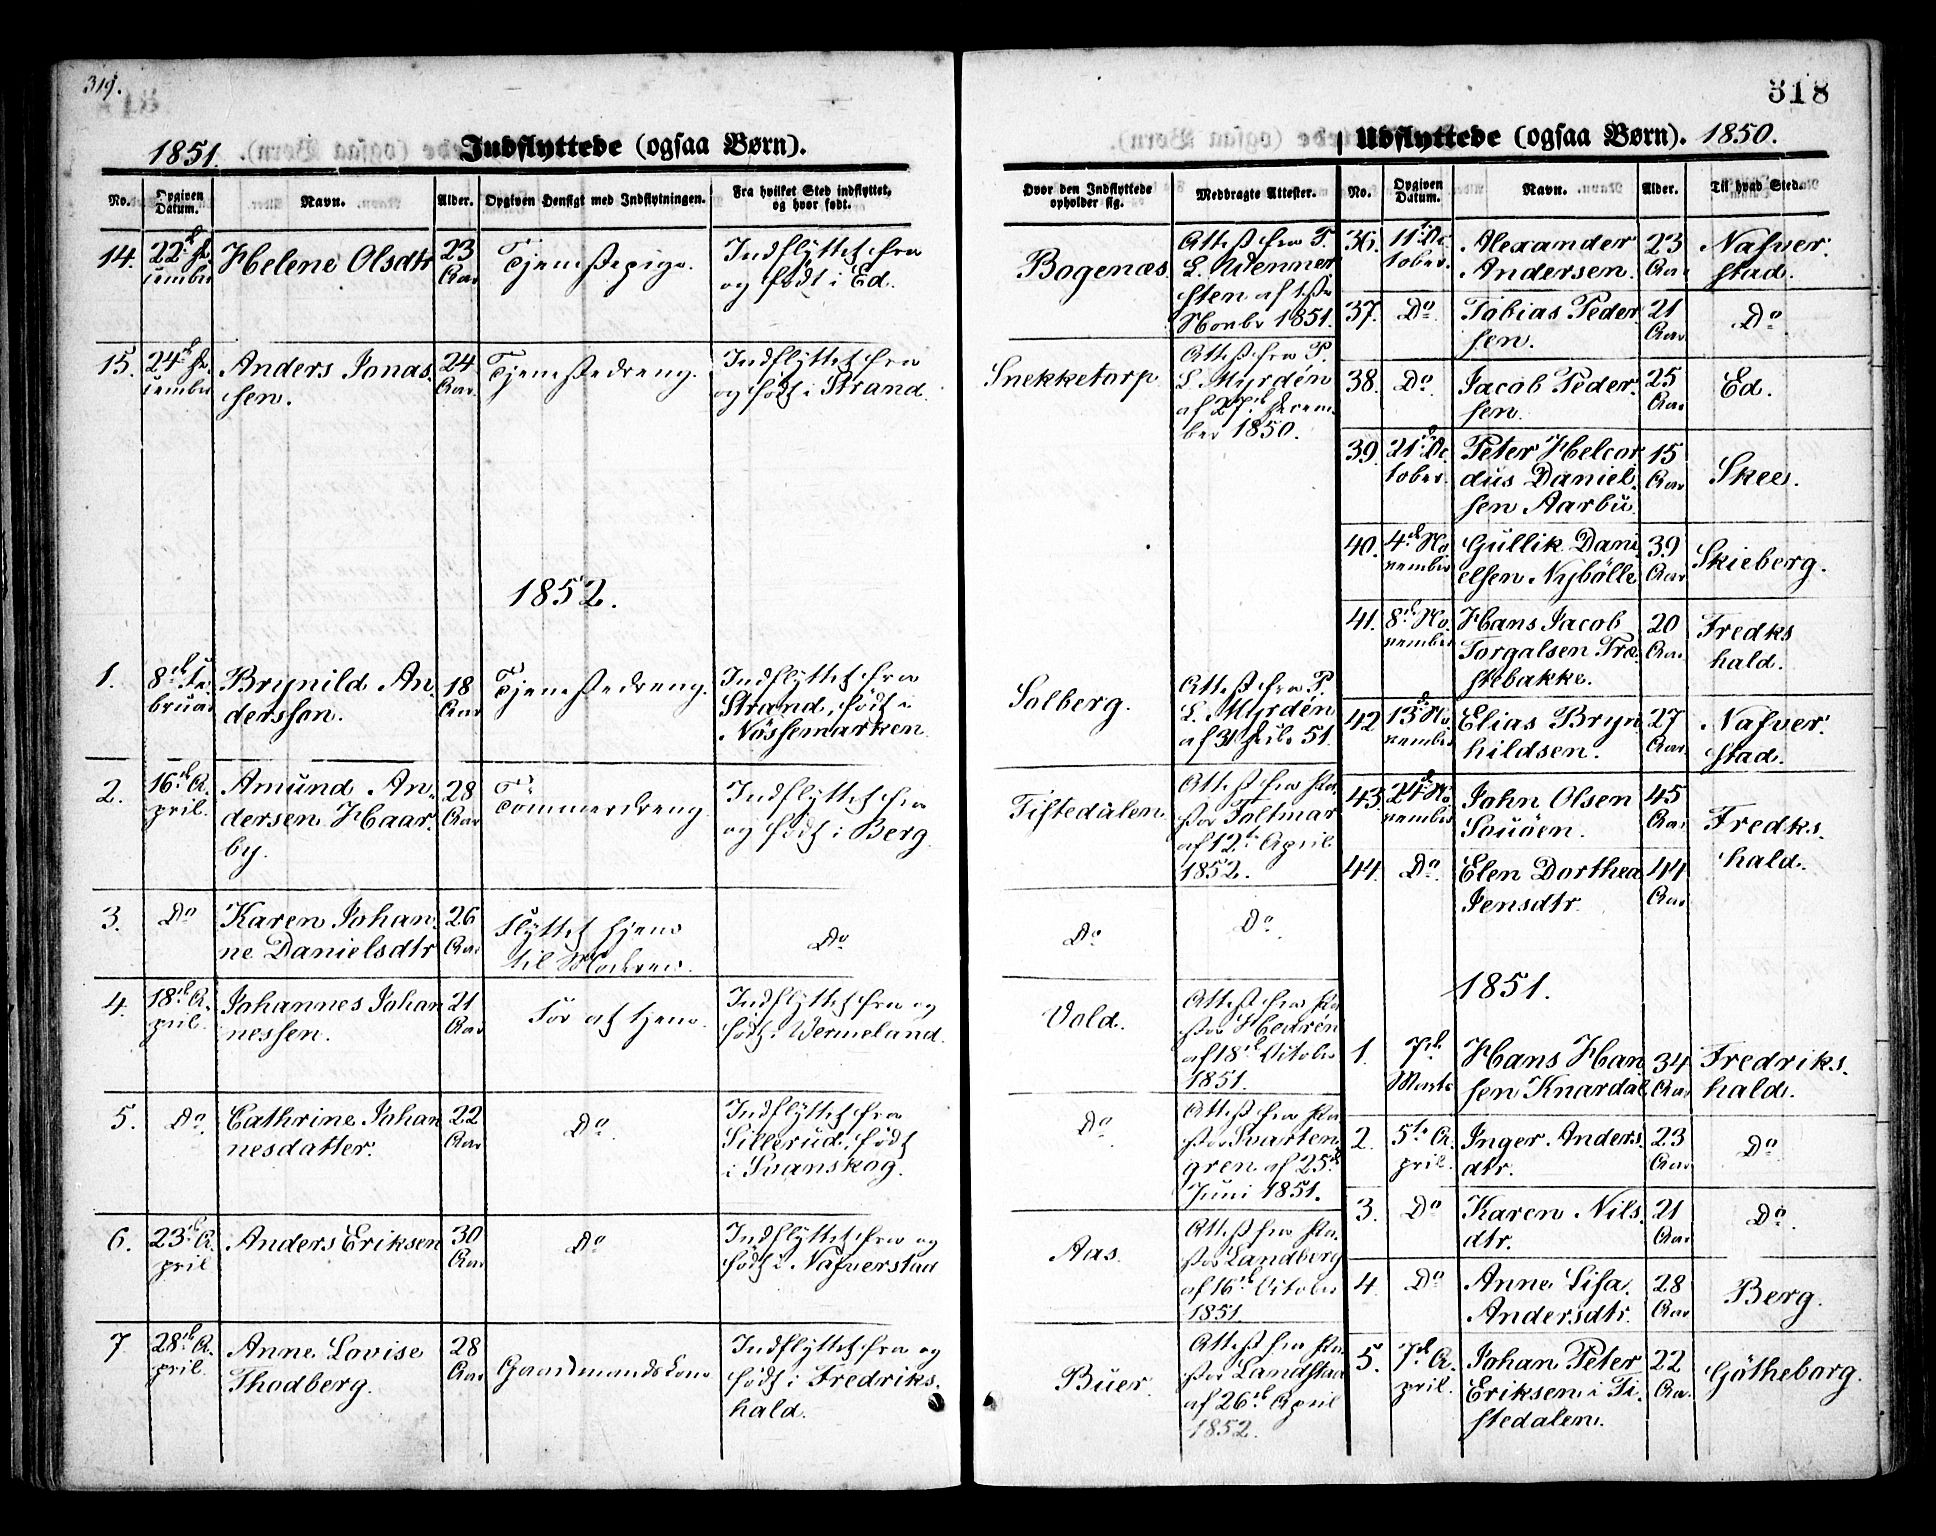 319.
318
1851. Indflyttede (ogsaa Børn).
No.
Opgiven Datum.
Navn.
Alder.
Opgiven Hensigt med Indflytningen.
Fra hvilket Sted indflyttet, og hvor født.
Hvor den Indflyttede opholder sig.
Medbragte Attester.
14.
22de De
cember
Helene Olsdtr
23
Aar
Tjenestepige.
Indflyttet fra
og født i Ed.
Bogenæs.
Attest fra P.
L. Wenner
sten af 1ste
Novbr 1851.
15.
24de De
cember
Anders Jonas
sen.
24
Aar.
Tjenestedreng.
Indflyttet fra
og født i Strand.
Snekketorp.
Attest fra P.
L. Myrdén
af 27de Decem
ber 1850.
1852.
1.
8de Fe
bruar
Brynild An
dersson.
18
Aar
Tjenestedreng.
Indflyttet fra
Strand, født i
Nössemarken.
Solberg.
Attest fra P.
L. Myrdén
af 31 51.
2.
16de A
pril.
Amund An
dersen Haar
by.
28
Aar
Tømmerdreng
Indflyttet fra
og født i Berg.
Tistedalen
Attest fra Pa
stor Foltmar
af 12te April
1852.
3.
Do
Karen Johan
ne Danielsdtr
26
Aar
Flyttet hjem
til Moderen.
Do
Do
Do
4.
18de A
pril.
Johannes Johan
nessen.
21
Aar
For at tjene.
Indflyttet fra og
født i Wermeland.
Vold.
Attest fra Pa
stor Hedrén
af 18de Octobr
1851.
5.
Do.
Cathrine Johan
nesdatter.
22
Aar
Do.
Indflyttet fra
Sillerud, født
i Svanskog.
Do.
Attest fra Pa
stor Svarten
gren af 25de
Juni 1851.
6.
23de A
pril
Anders Eriksen
30
Aar
Do
Indflyttet fra og
født i Nafverstad
Aas.
Attest fra Pa
stor Landberg
af 16de Octobr
1851
7
28de A
pril.
Anne Lovise
Thodberg.
28
Aar
Gaardmandskone.
Indflyttet fra og
født i Fredriks
hald.
Buer.
Attest fra Pa
stor Landstad
af 26de April
1852.
Udflyttede (ogsaa Børn). 1850.
No.
Opgiven Datum.
Navn.
Alder.
Til hvad Sted.
36.
11te Oc
tober.
Alexander
Andersen.
23
Aar
Nafver
stad.
37.
Do.
Tobias Peder
sen.
21
Aar
Do
38.
Do
Jacob Peder
sen.
25
Aar
Ed.
39.
21de Oc
tober.
Peter Helcor
dus Daniel
sen Aarbu
15
Aar
Skee.
40.
4de No
vember
Gullik Dani
elsen Nybølle
39
Aar
Skieberg.
41.
8de No
vember
Hans Jacob
Torgalsen Træ
stebakke.
20
Aar
Fredks
hald.
42
13de No
vember
Elias Bryn
hildsen.
27
Aar.
Nafver
stad.
43.
24de No
vember
John Olsen
Souøen.
45
Aar
Fredks.
hald.
44.
Do
Elen Dorthea
Jensdtr
44
Aar
1851.
1.
7de
Marts
Hans Han
sen Knardal
34
Aar
Fredriks
hald.
2.
5te A
pril.
Inger Anders
dtr.
23
Aar
Do
3.
Do
Karen Nils
dtr.
21
Aar
Do.
4
Do
Anne Lisa
Andersdtr.
28
Aar
Berg.
5.
7de A
pril.
Johan Peter
Eriksen i Ti
stedalen.
22
Aar.
Götheborg.